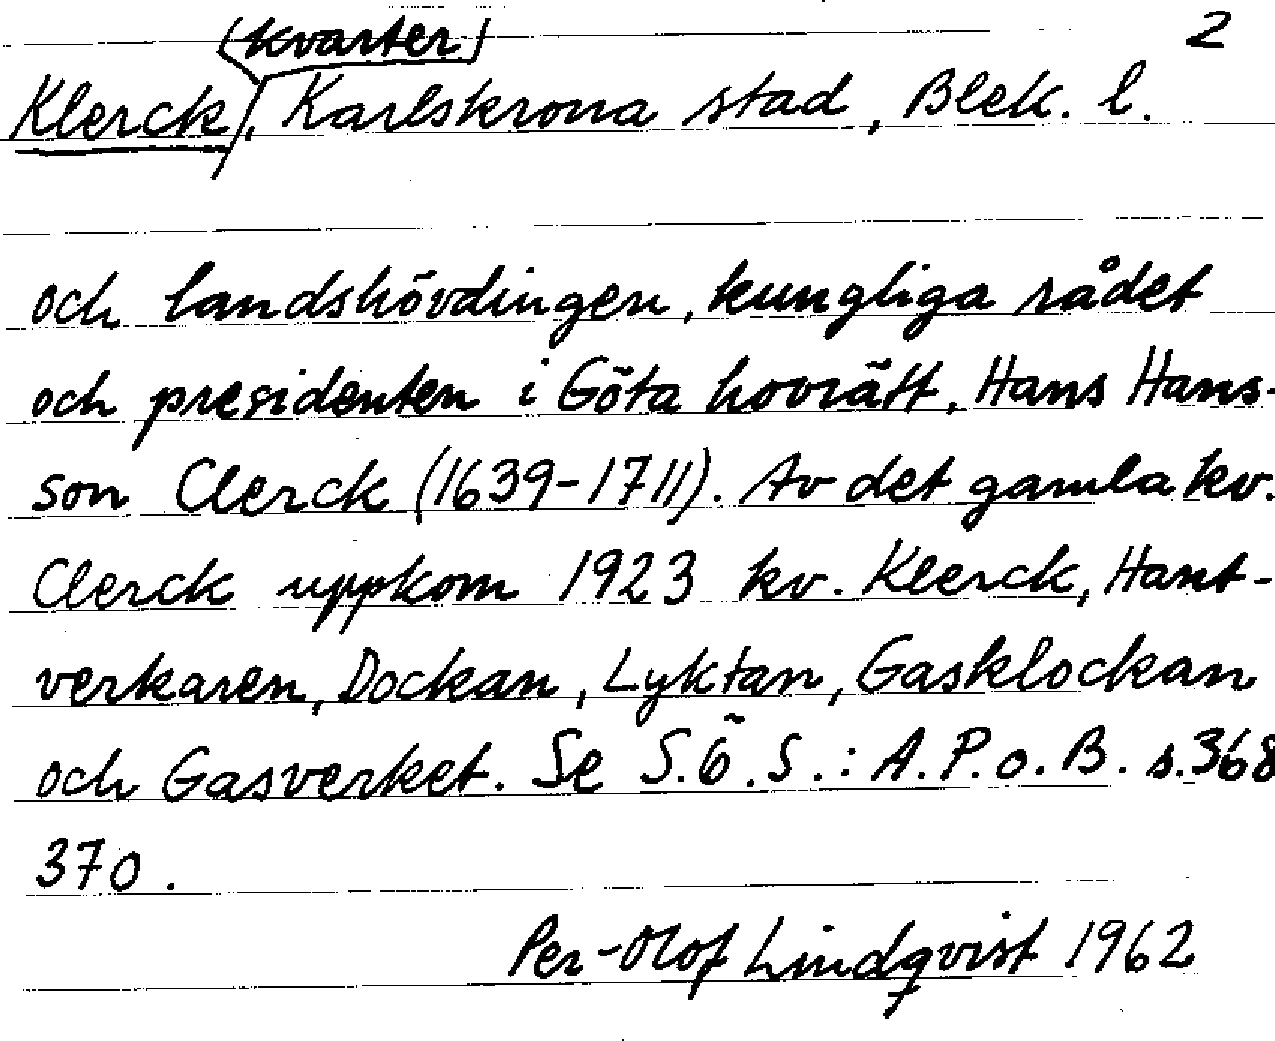 (kvarter) 2
Klerck, Karlskrona stad, Blek. l.
och landshövdingen, kungliga rådet
och presidenten i Göta hovrätt, Hans Hans-
son Clerck (1639-1711). Av det gamla kv.
Clerck uppkom 1923 kv. Klerck, Hant-
verkaren, Dockan, Lyktan, Gasklockan
och Gasverket. Se S.Ö.S.: A.P.o.B. s.368
370.
Per-Olof Lindqvist 1962